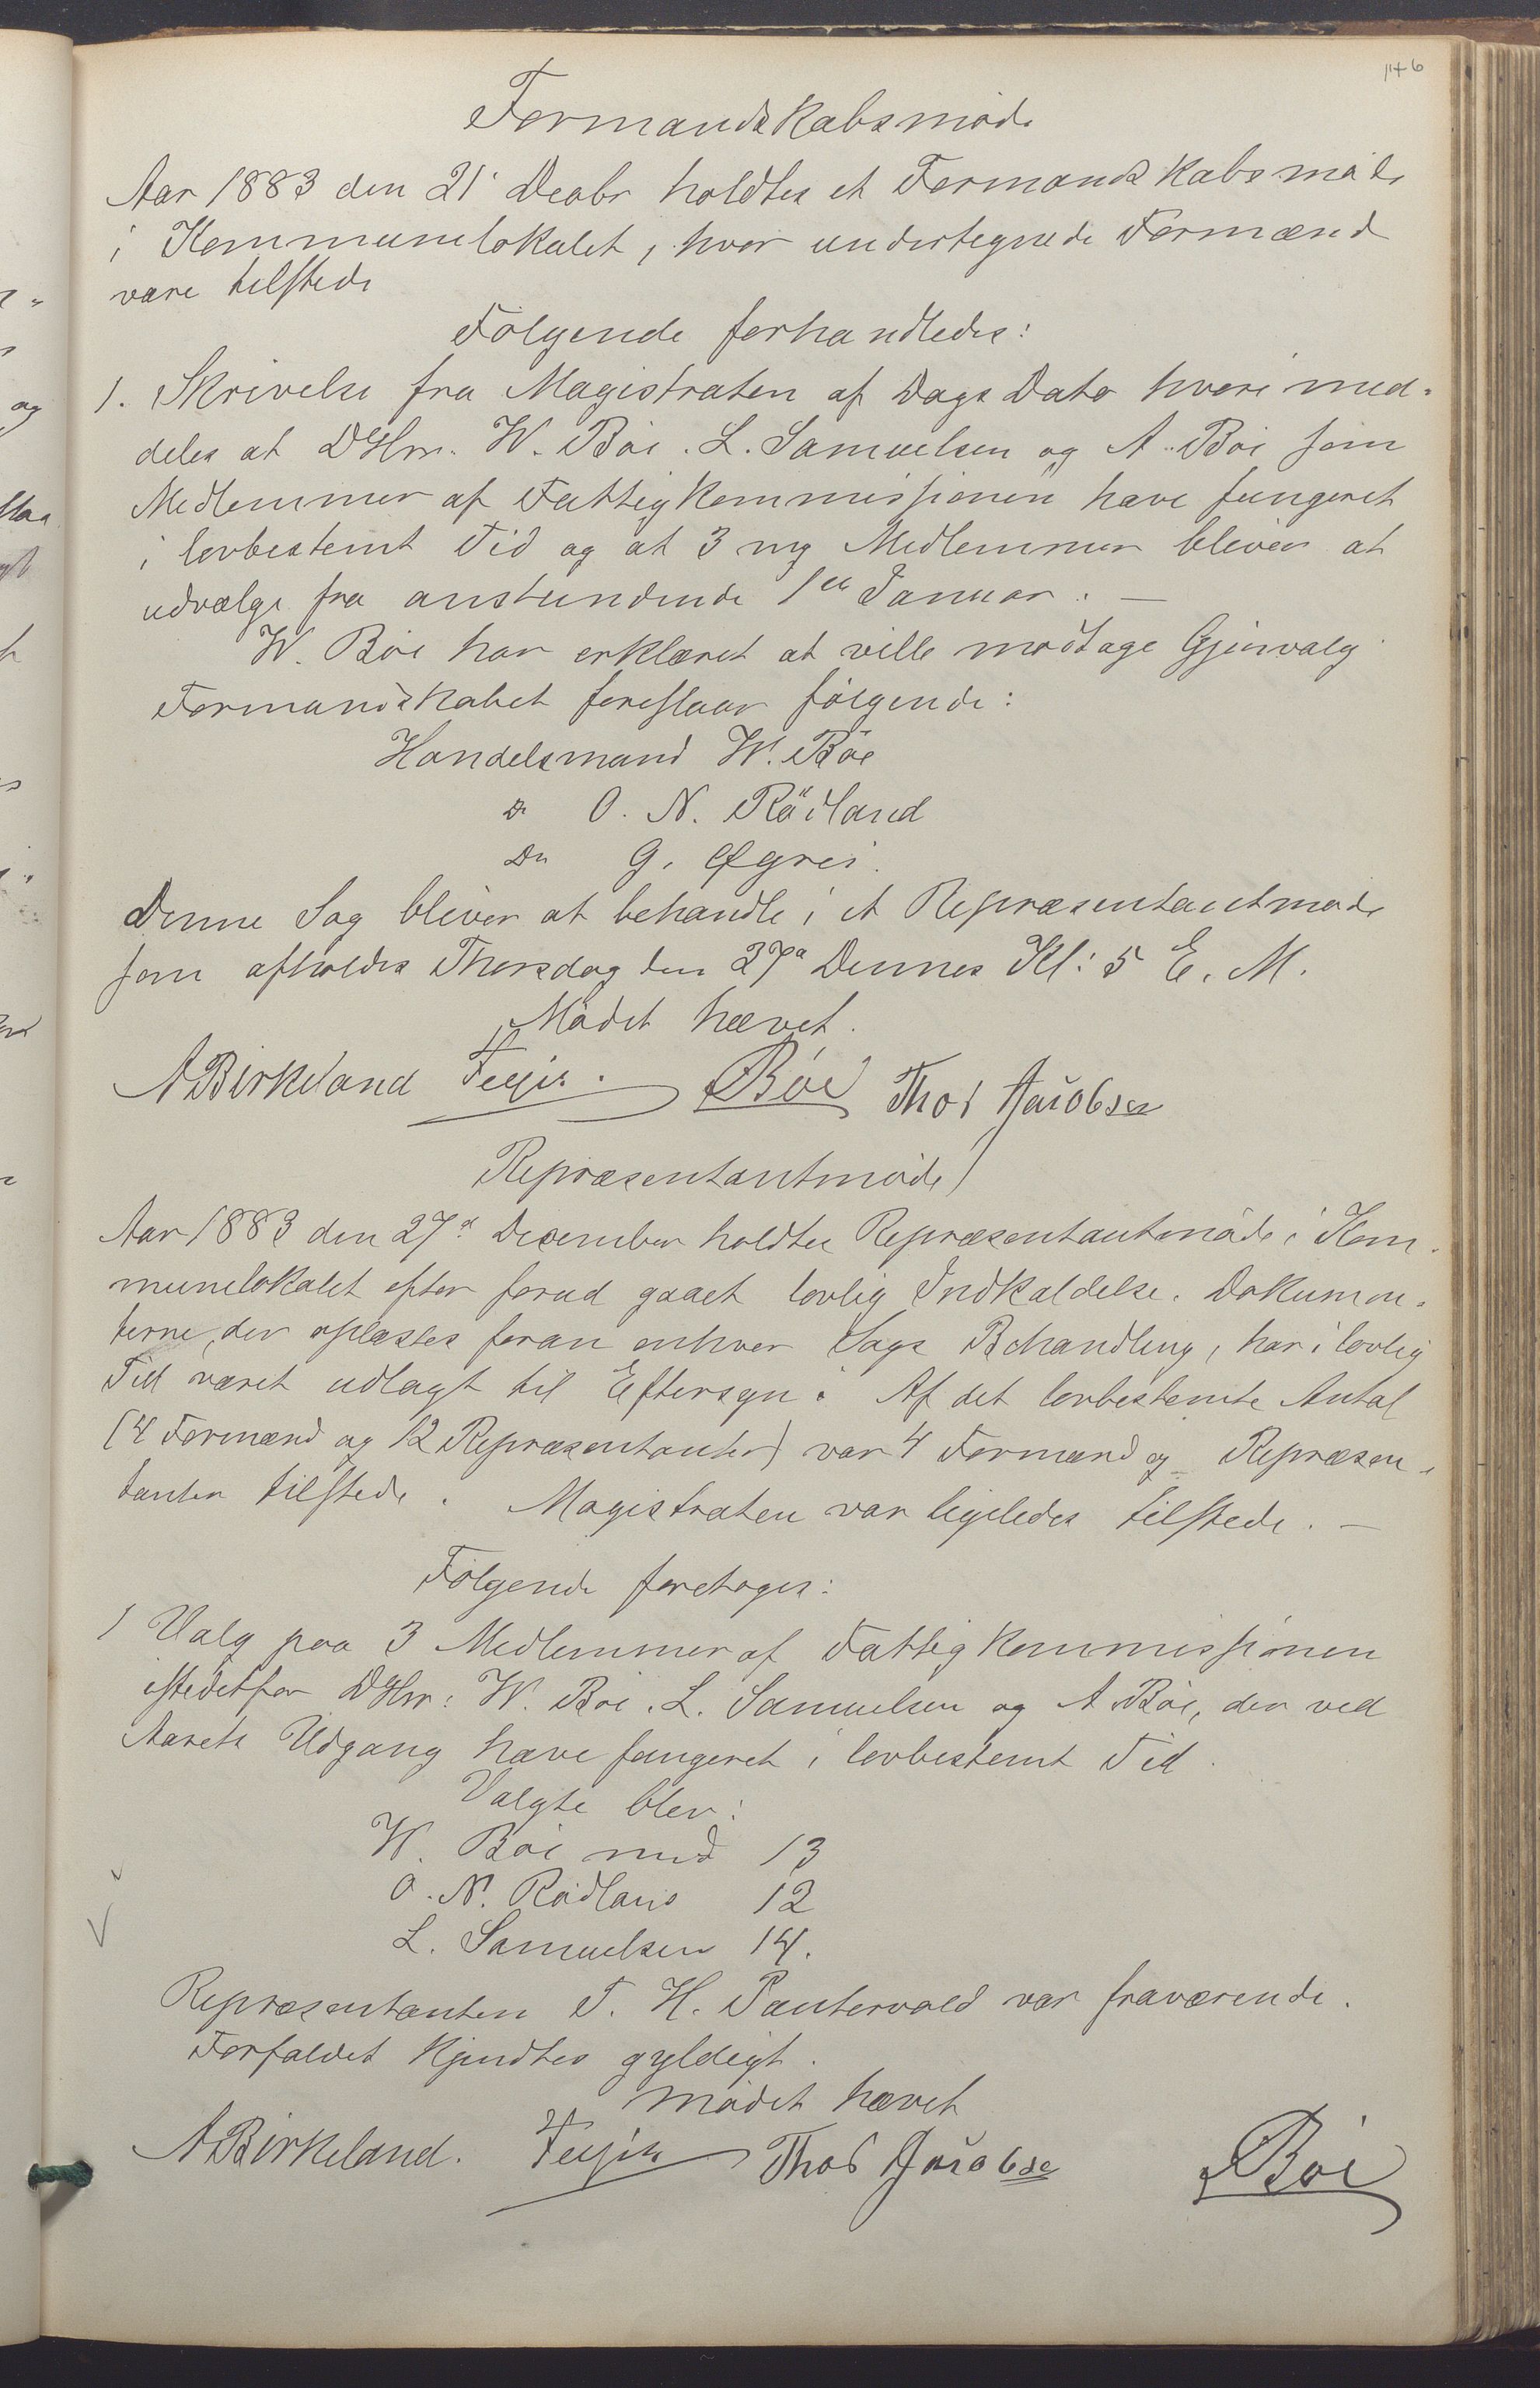 146
Formandskabsmøde
Aar 1883 den 21' Decbr holdtes et Formandskabsmøde
i Kommunelokalet, hvor undertegnede Formænd
vare tilstede
Følgende forhandledes:
1. Skrivelse fra Magistraten af Dags Dato hvori med-
deles at DHrr. W. Bøe. L. Samuelsen og A. Bøe som
Medlemmer af Fattigkommissionen have fungeret
i lovbestemt Tid og at 3 ny Medlemmer bliver at
udvælge fra anstundende 1ste Januar. —
W. Bøe har erklæret at ville modtage Gjenvalg
Formandskabet foreslaar følgende:
Handelsmand W. Bøe
Do O. N. Rødland
Do G. Øgrei.
Denne Sag bliver at behandle i et Repræsentantmøde
som afholdes Thorsdag den 27de Dennes Kl: 5 E. M.
Mødet hævet.
A Birkeland Bøe Thos Jacobsen
Repræsentantmøde
Aar 1883 den 27de December holdtes Repræsentantmøde i Kom-
munelokalet efter forud gaaet lovlig Indkaldelse. Dokumen-
terne, der oplæstes foran enhver Sags Behandling, har i lovlig
Tid været udlagt til Eftersyn. Af det lovbestemte Antal
(4 Formænd og 12 Repræsentanter) var 4 Formænd og Repræsen-
tanter tilstede. Magistraten var ligeledes tilstede. —
Følgende foretoges:
1 Valg paa 3 Medlemmer af Fattigkommissionen
istedetfor DHrr: W. Bøe. L. Samuelsen og A Bøe, der ved
Aarets Udgang have fungeret i lovbestemt Tid.
Valgte blev:
W. Bøe med 13
O. N. Rødland 12
L. Samuelsen 14.
Repræsentanten T. H. Puntervold var fraværende.
Forfaldet kjendtes gyldigt.
Mødet hævet
A Birkeland. Thos Jacobsen Bøe